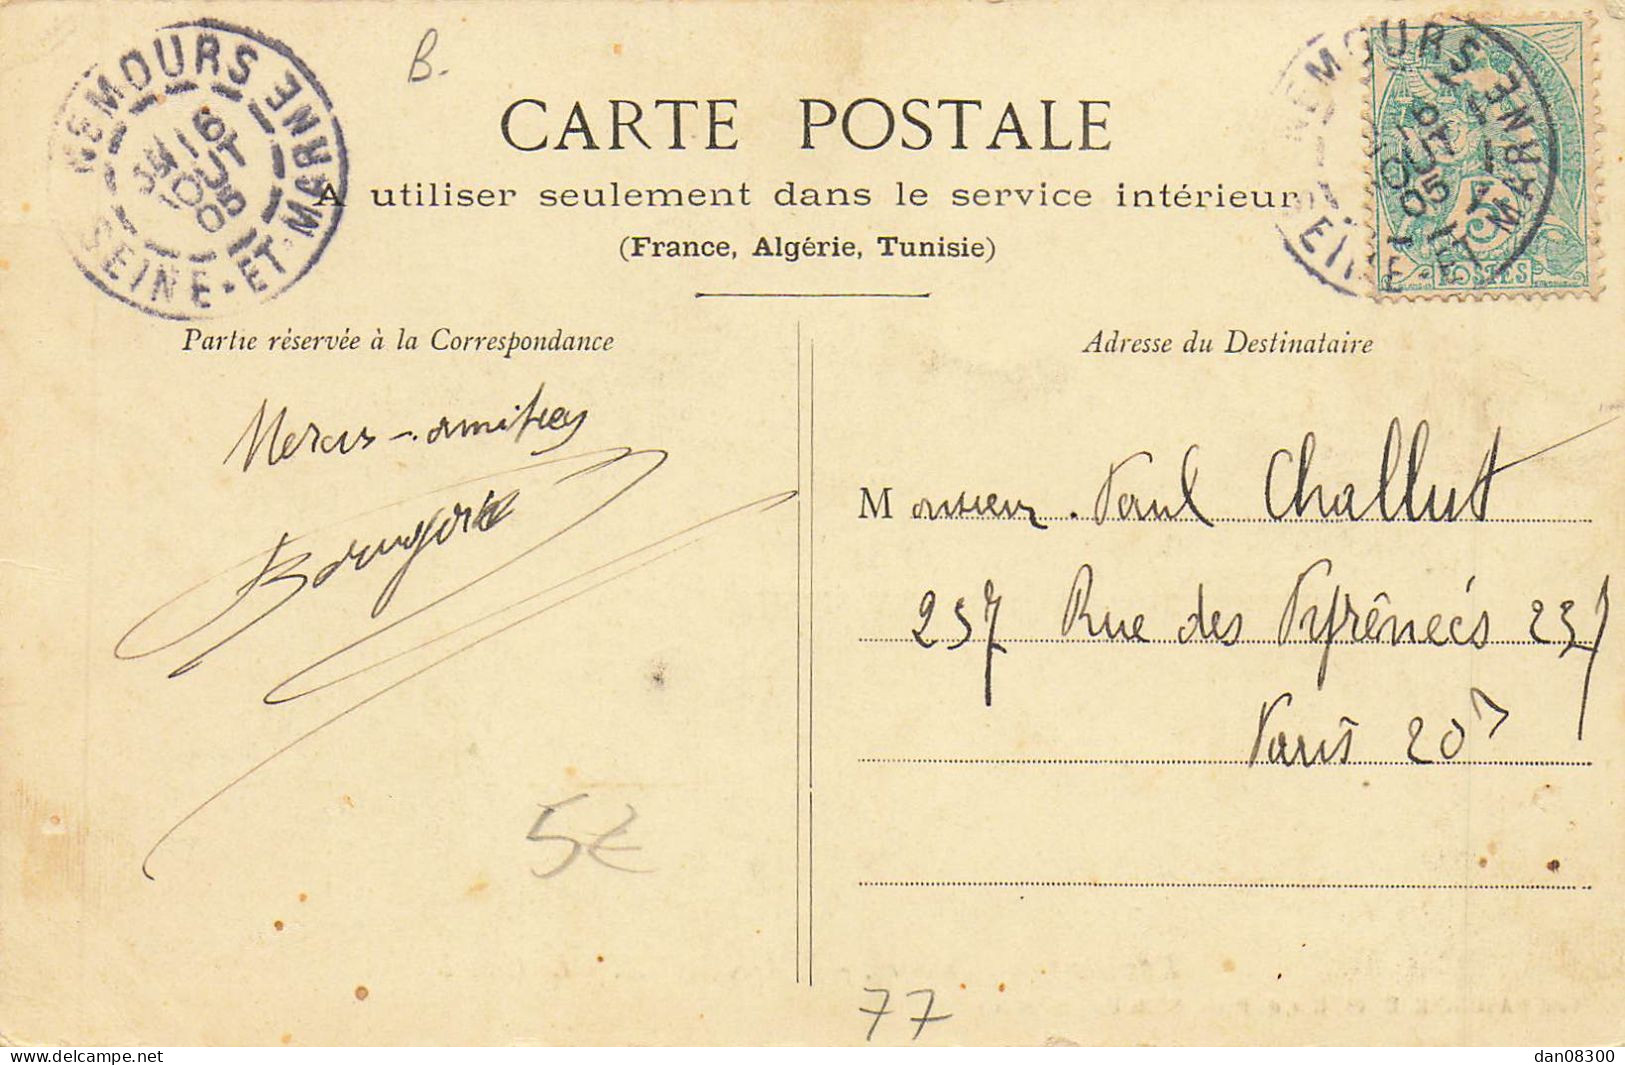 B.
NEMOURS
SEINE-ET-MARNE
16
AOUT
05
NEMOURS
SEINE-ET-MARNE
16
AOUT
05
5
POSTES
CARTE POSTALE
A utiliser seulement dans le service intérieur
(France, Algérie, Tunisie)
Partie réservée à la Correspondance
Adresse du Destinataire
Mercis - amitiés
Monsieur Paul Challut
237 Rue des Pyrénées 237
Paris 20
5€
77
dan08300